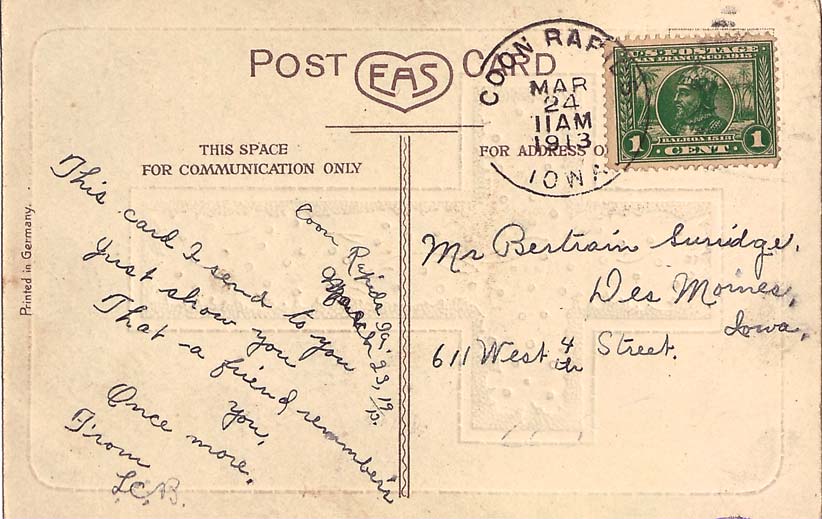 POST EAS CARD
COON RAPIDS
MAR
24
11AM
1913
IOWA
U.S. POSTAGE
SAN FRANCISCO, 1915
BALBOA 1513
1 CENT 1
THIS SPACE
FOR COMMUNICATION ONLY
FOR ADDRESS O
Printed in Germany.
Coon Rapids Ia,
March 23, 19/13.
This card I send to you
Just show you
That a friend remembers
you,
Once more,
From
L.C.B.
Mr Bertrain Surridge,
Des Moines,
Iowa,
611 West 4th Street.